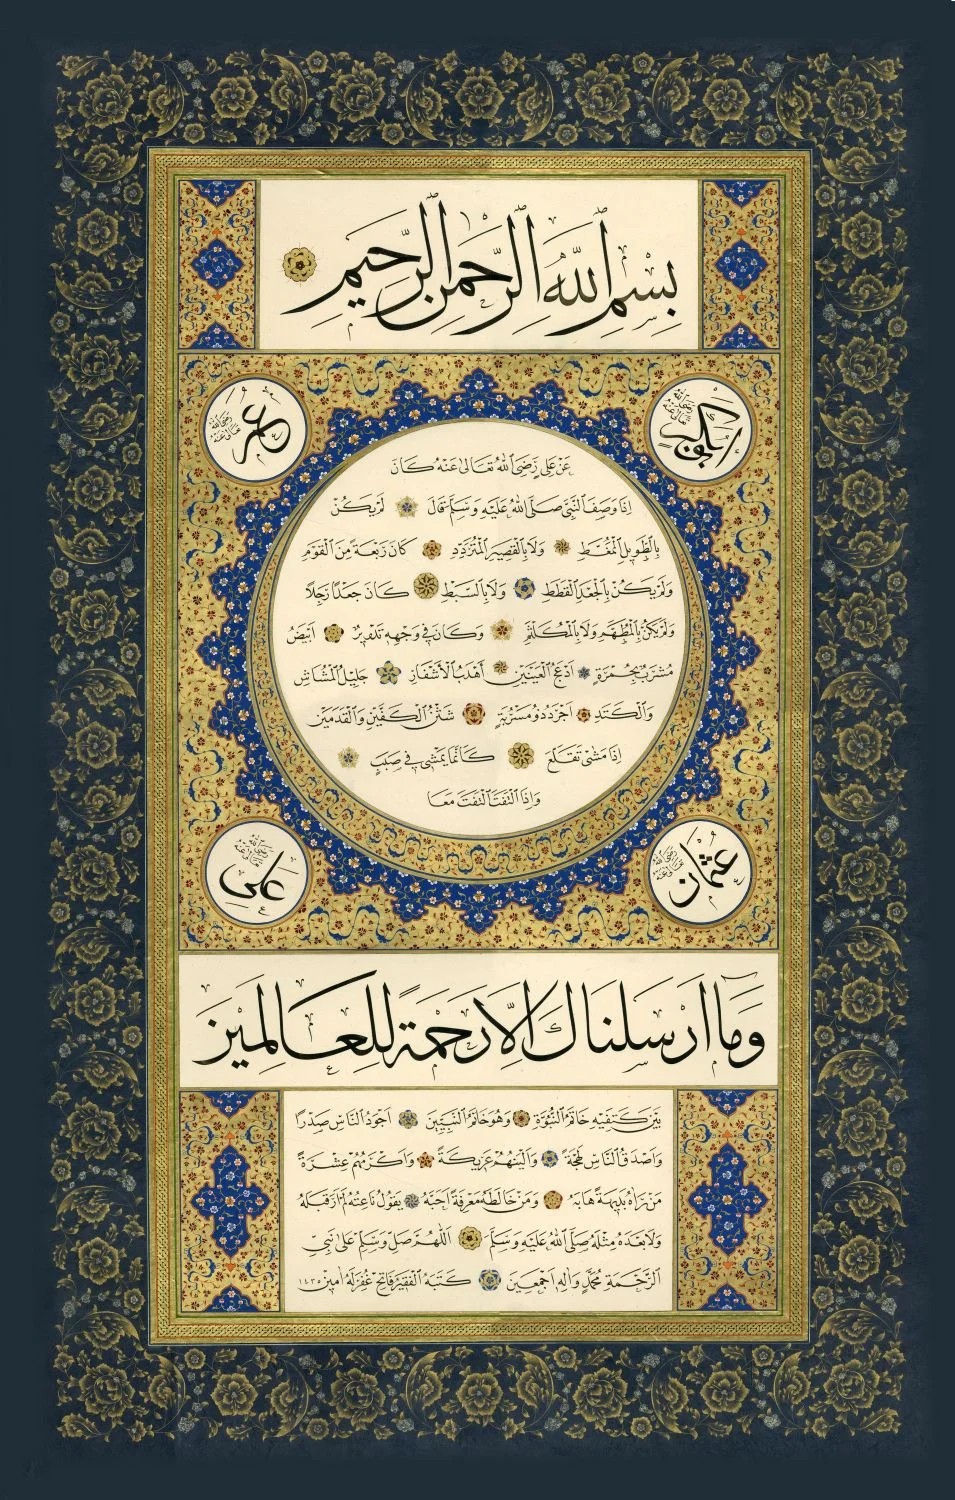 بسم الله الرحمن الرحيم
ابو بكر رضي الله تعالى عنه
عمر رضي الله تعالى عنه
عن علي رضي الله تعالى عنه كان
اذا وصف النبي صلى الله عليه وسلم قال لم يكن
بالطويل الممغط ولا بالقصير المتردد كان ربعة من القوم
ولم يكن بالجعد القطط ولا بالسبط كان جعدا رجلا
ولم يكن بالمطهم ولا بالمكلثم وكان في وجهه تدوير ابيض
مشرب بحمرة ادعج العينين اهدب الأشفار جليل المشاش
والكتد اجرد ذو مسربة شثن الكفين والقدمين
اذا مشى تقلع كأنما يمشي في صبب
واذا التفت التفت معا
عثمان رضي الله تعالى عنه
علي رضي الله تعالى عنه
وما ارسلناك الا رحمة للعالمين
بين كتفيه خاتم النبوة وهو خاتم النبيين اجود الناس صدرا
واصدق الناس لهجة والينهم عريكة واكرمهم عشرة
من رآه بديهة هابه ومن خالطه معرفة احبه يقول ناعته لم ار قبله
ولا بعده مثله صلى الله عليه وسلم اللهم صل وسلم على نبي
الرحمة محمد وآله اجمعين كتبه الفقير فاتح غفر له آمين ١٤٣٥